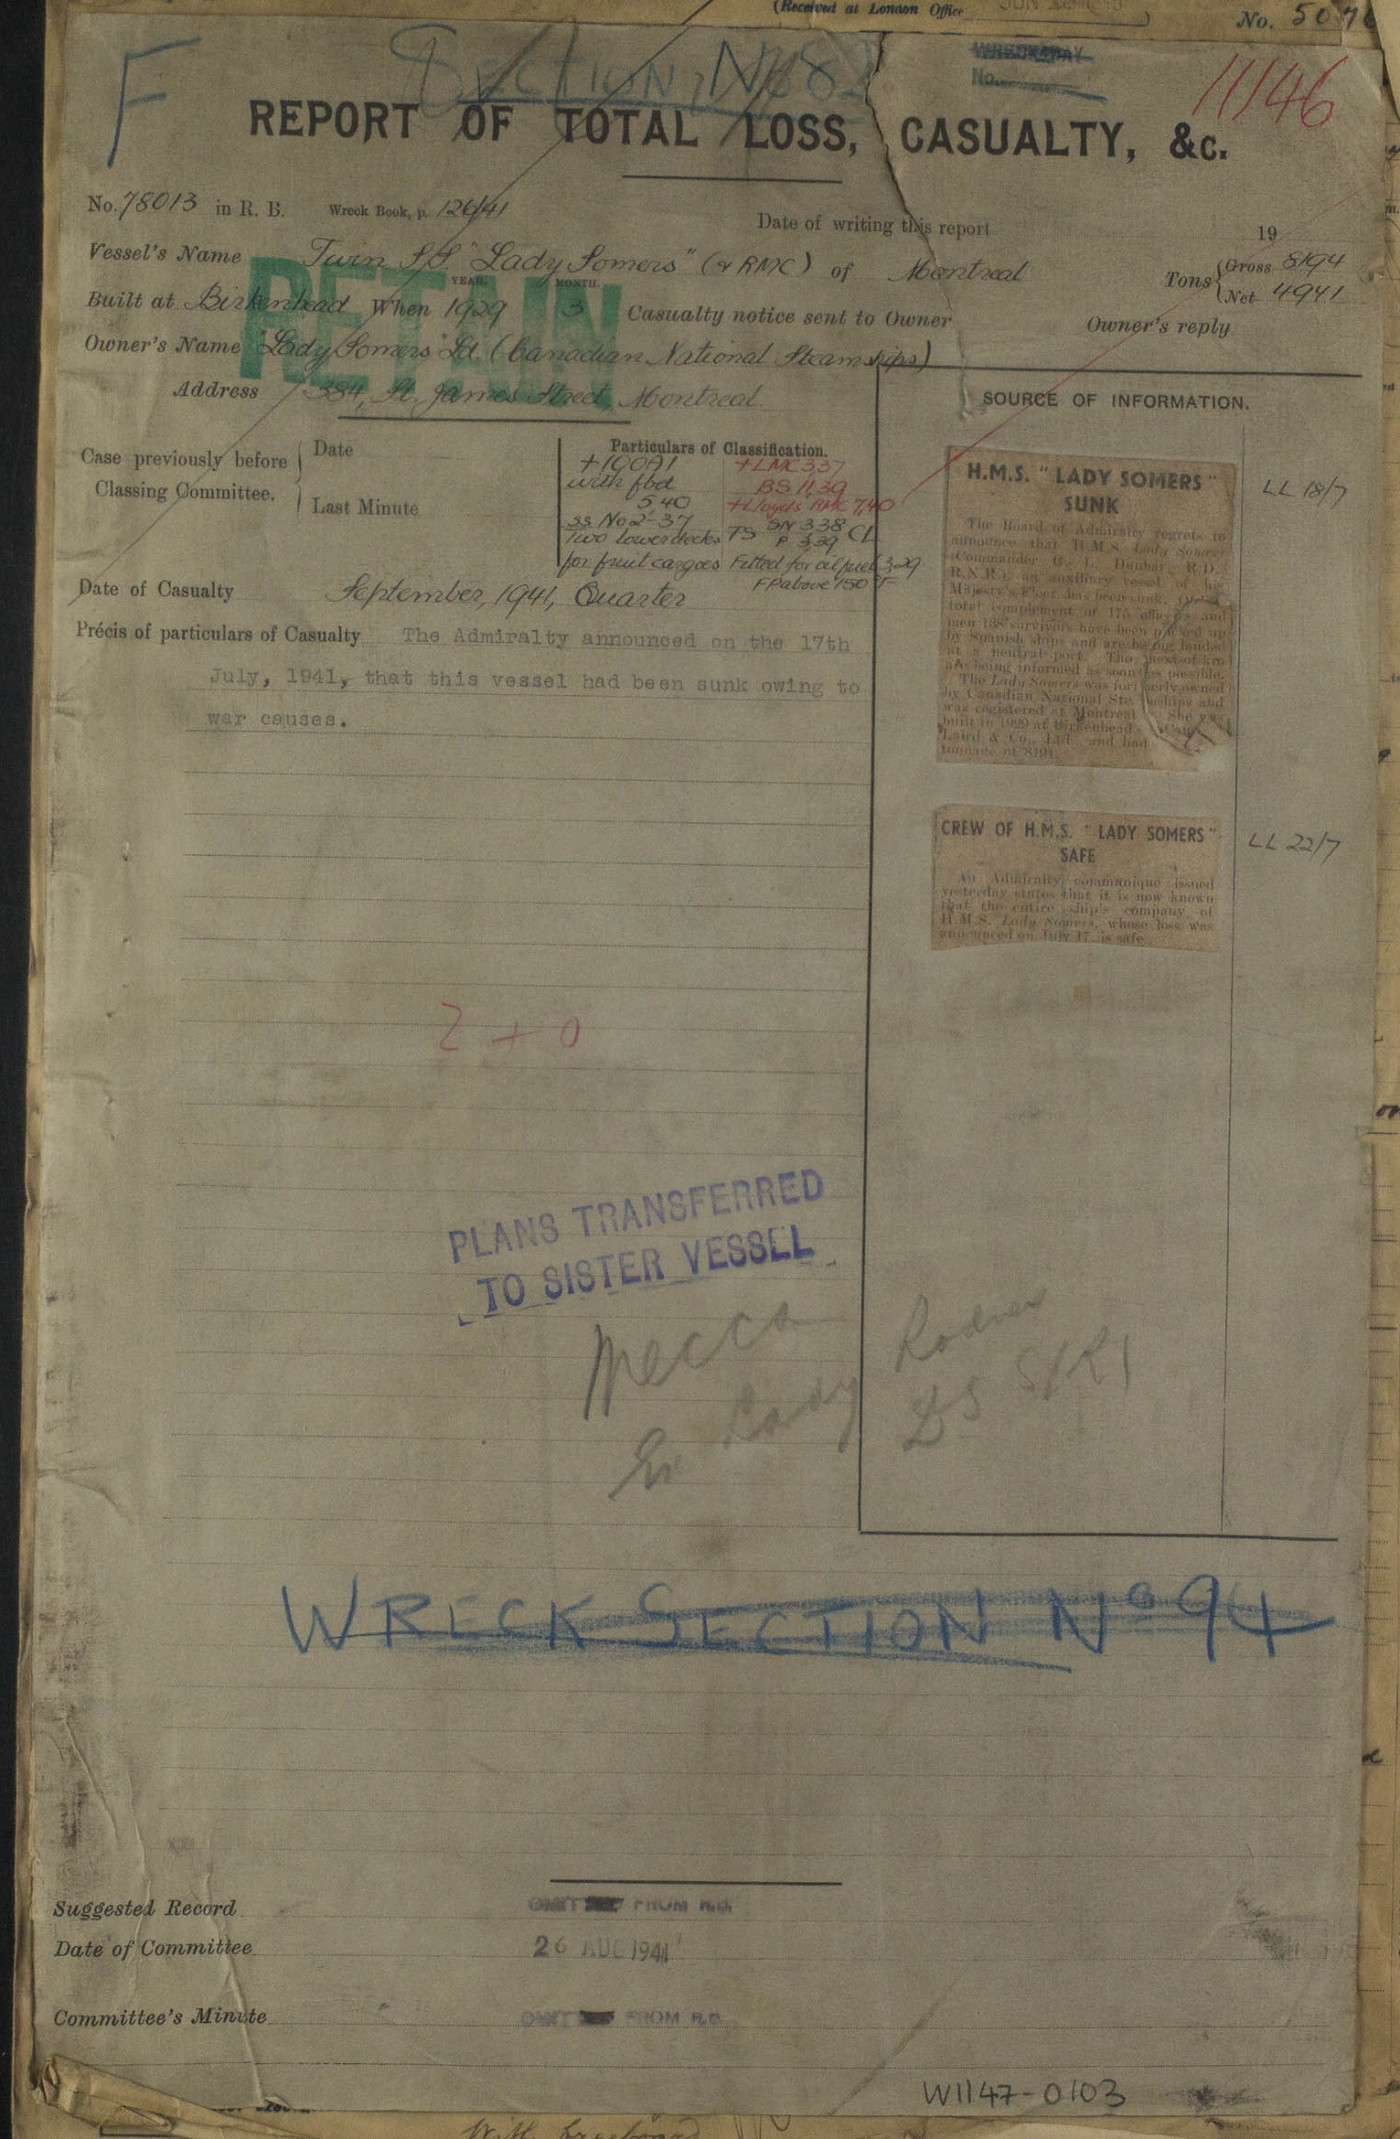 (Received at London Office
No. 5076
F
SECTION, No 82
WRECK BAY
No.
11146
REPORT OF TOTAL LOSS, CASUALTY, &c.
No. 78013 in R. B. Wreck Book, p. 126/41
Date of writing this report 19
Vessel's Name Twin S.S. "Lady Somers" (& RMC) of Montreal
Tons { Gross 8194
Net 4941
YEAR. MONTH.
Built at Birkenhead When 1929 3 Casualty notice sent to Owner Owner's reply
RETAIN
Owner's Name "Lady Somers" Ld. (Canadian National Steamships)
Address 384, St. James Street, Montreal.
Case previously before Classing Committee.
Date
Last Minute
Particulars of Classification.
+100A1
with fbd
5,40
ss No 2-37
Two lower decks
for fruit cargoes
+LMC 3,37
BS 11,39
+Lloyds RMC 7,40
TS SN 3,38 CL
P 3,39
Fitted for oil fuel 3,29
F P above 150°F
Date of Casualty September, 1941, Quarter
Précis of particulars of Casualty The Admiralty announced on the 17th
July, 1941, that this vessel had been sunk owing to
war causes.
2 + 0
PLANS TRANSFERRED
TO SISTER VESSEL
Mecca
Ex Lady Rodney
SOURCE OF INFORMATION.
H.M.S. "LADY SOMERS"
SUNK
The Board of Admiralty regrets to
announce that H.M.S. Lady Somers
(Commander G. L. Dunbar, R.D.,
R.N.R.), an auxiliary vessel of his
Majesty's Fleet, has been sunk. Of a
total complement of 175 officers and
men 138 survivors have been picked up
by Spanish ships and are being landed
at a neutral port. The next-of-kin
are being informed as soon as possible.
The Lady Somers was formerly owned
by Canadian National Steamships and
was registered at Montreal. She was
built in 1929 at Birkenhead
Laird & Co., Ltd., and had
tonnage of 8194.
LL 18/7
CREW OF H.M.S. "LADY SOMERS"
SAFE
An Admiralty communique issued
yesterday states that it is now known
that the entire ship's company of
H.M.S. Lady Somers, whose loss was
announced on July 17, is safe.
LL 22/7
WRECK SECTION No 94
Suggested Record FROM R.B.
Date of Committee 26 AUG 1941
Committee's Minute FROM R.B.
W1147-0103